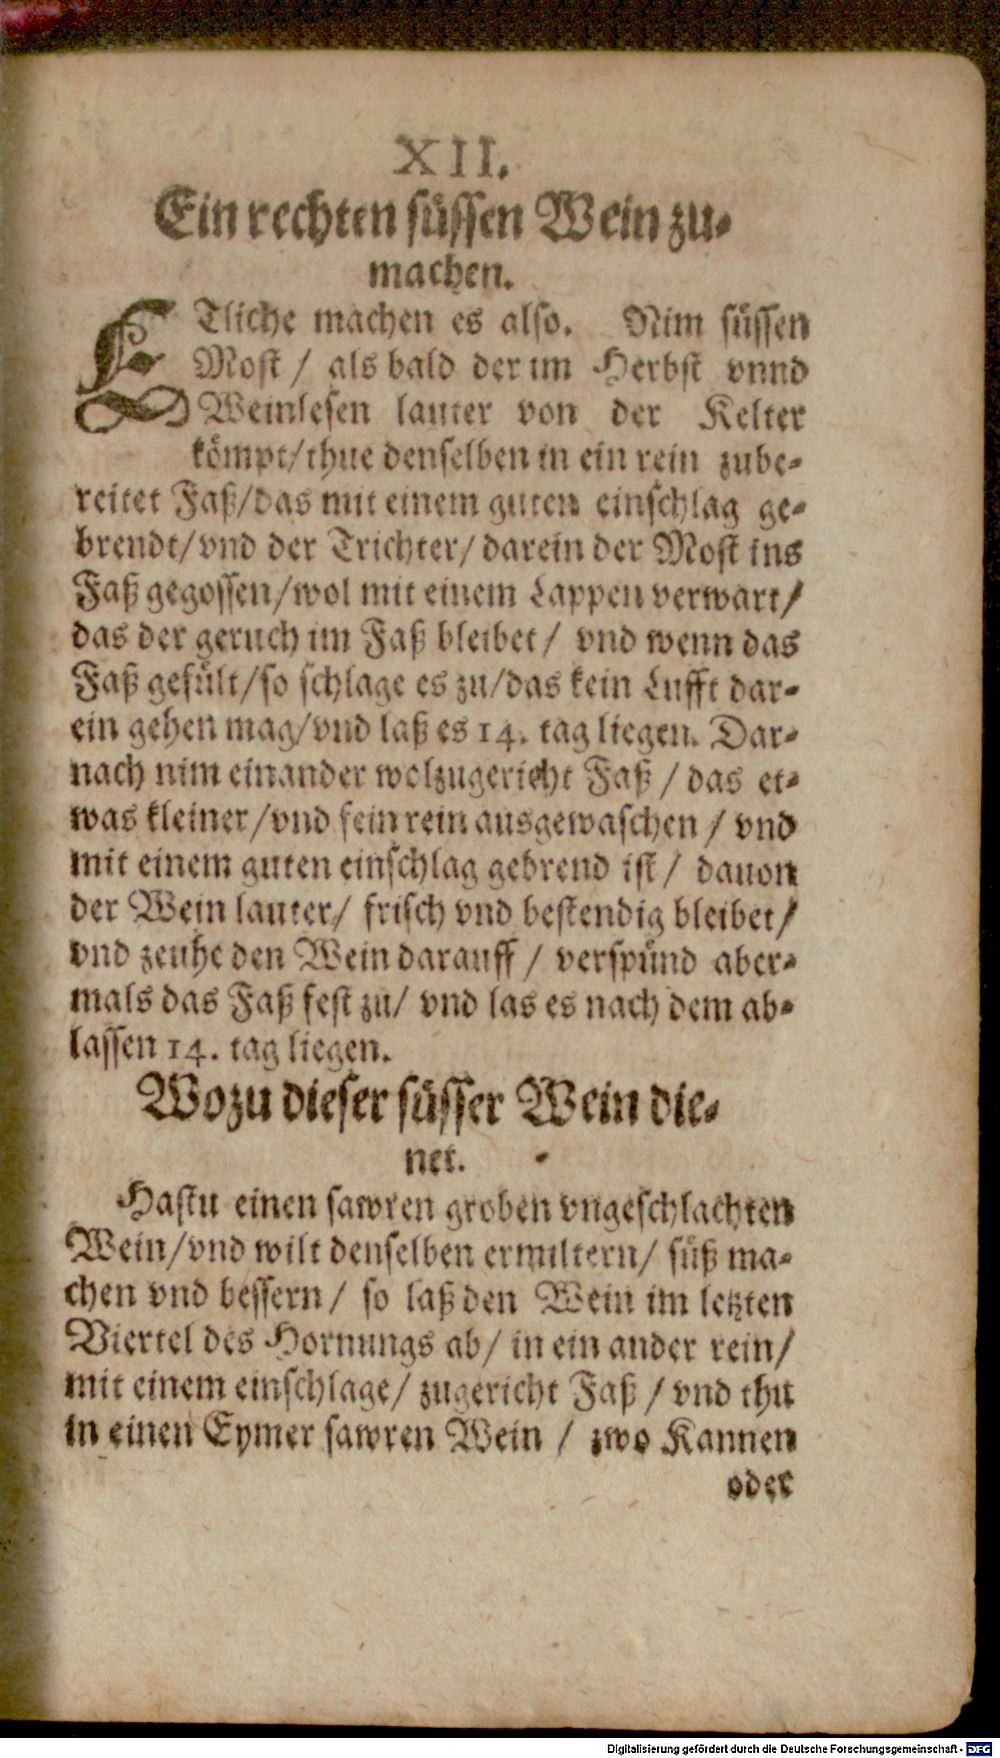 XII.
Ein rechten süssen Wein zu-
machen.
ETliche machen es also. Nim süssen
Most / als bald der im Herbst vnnd
Weinlesen lauter von der Kelter
kömpt/thue denselben in ein rein zube-
reitet Faß/das mit einem guten einschlag ge-
brendt/vnd der Trichter/darein der Most ins
Faß gegossen/wol mit einem Lappen verwart/
das der geruch im Faß bleibet/ vnd wenn das
Faß gefült/so schlage es zu/das kein Lufft dar-
ein gehen mag/vnd laß es 14. tag liegen. Dar-
nach nim ein ander wolzugericht Faß / das et-
was kleiner/vnd fein rein ausgewaschen / vnd
mit einem guten einschlag gebrend ist / dauon
der Wein lauter/ frisch vnd bestendig bleibet/
vnd zeuhe den Wein darauff / verspünd aber-
mals das Faß fest zu/ vnd las es nach dem ab-
lassen 14. tag liegen.
Wozu dieser süsser Wein die-
net.
Hastu einen sawren groben vngeschlachten
Wein/vnd wilt denselben ermiltern/ süß ma-
chen vnd bessern/ so laß den Wein im letzten
Viertel des Hornungs ab/ in ein ander rein/
mit einem einschlage/ zugericht Faß / vnd thu
in einen Eymer sawren Wein / zwo Kannen
oder
Digitalisierung gefördert durch die Deutsche Forschungsgemeinschaft - DFG